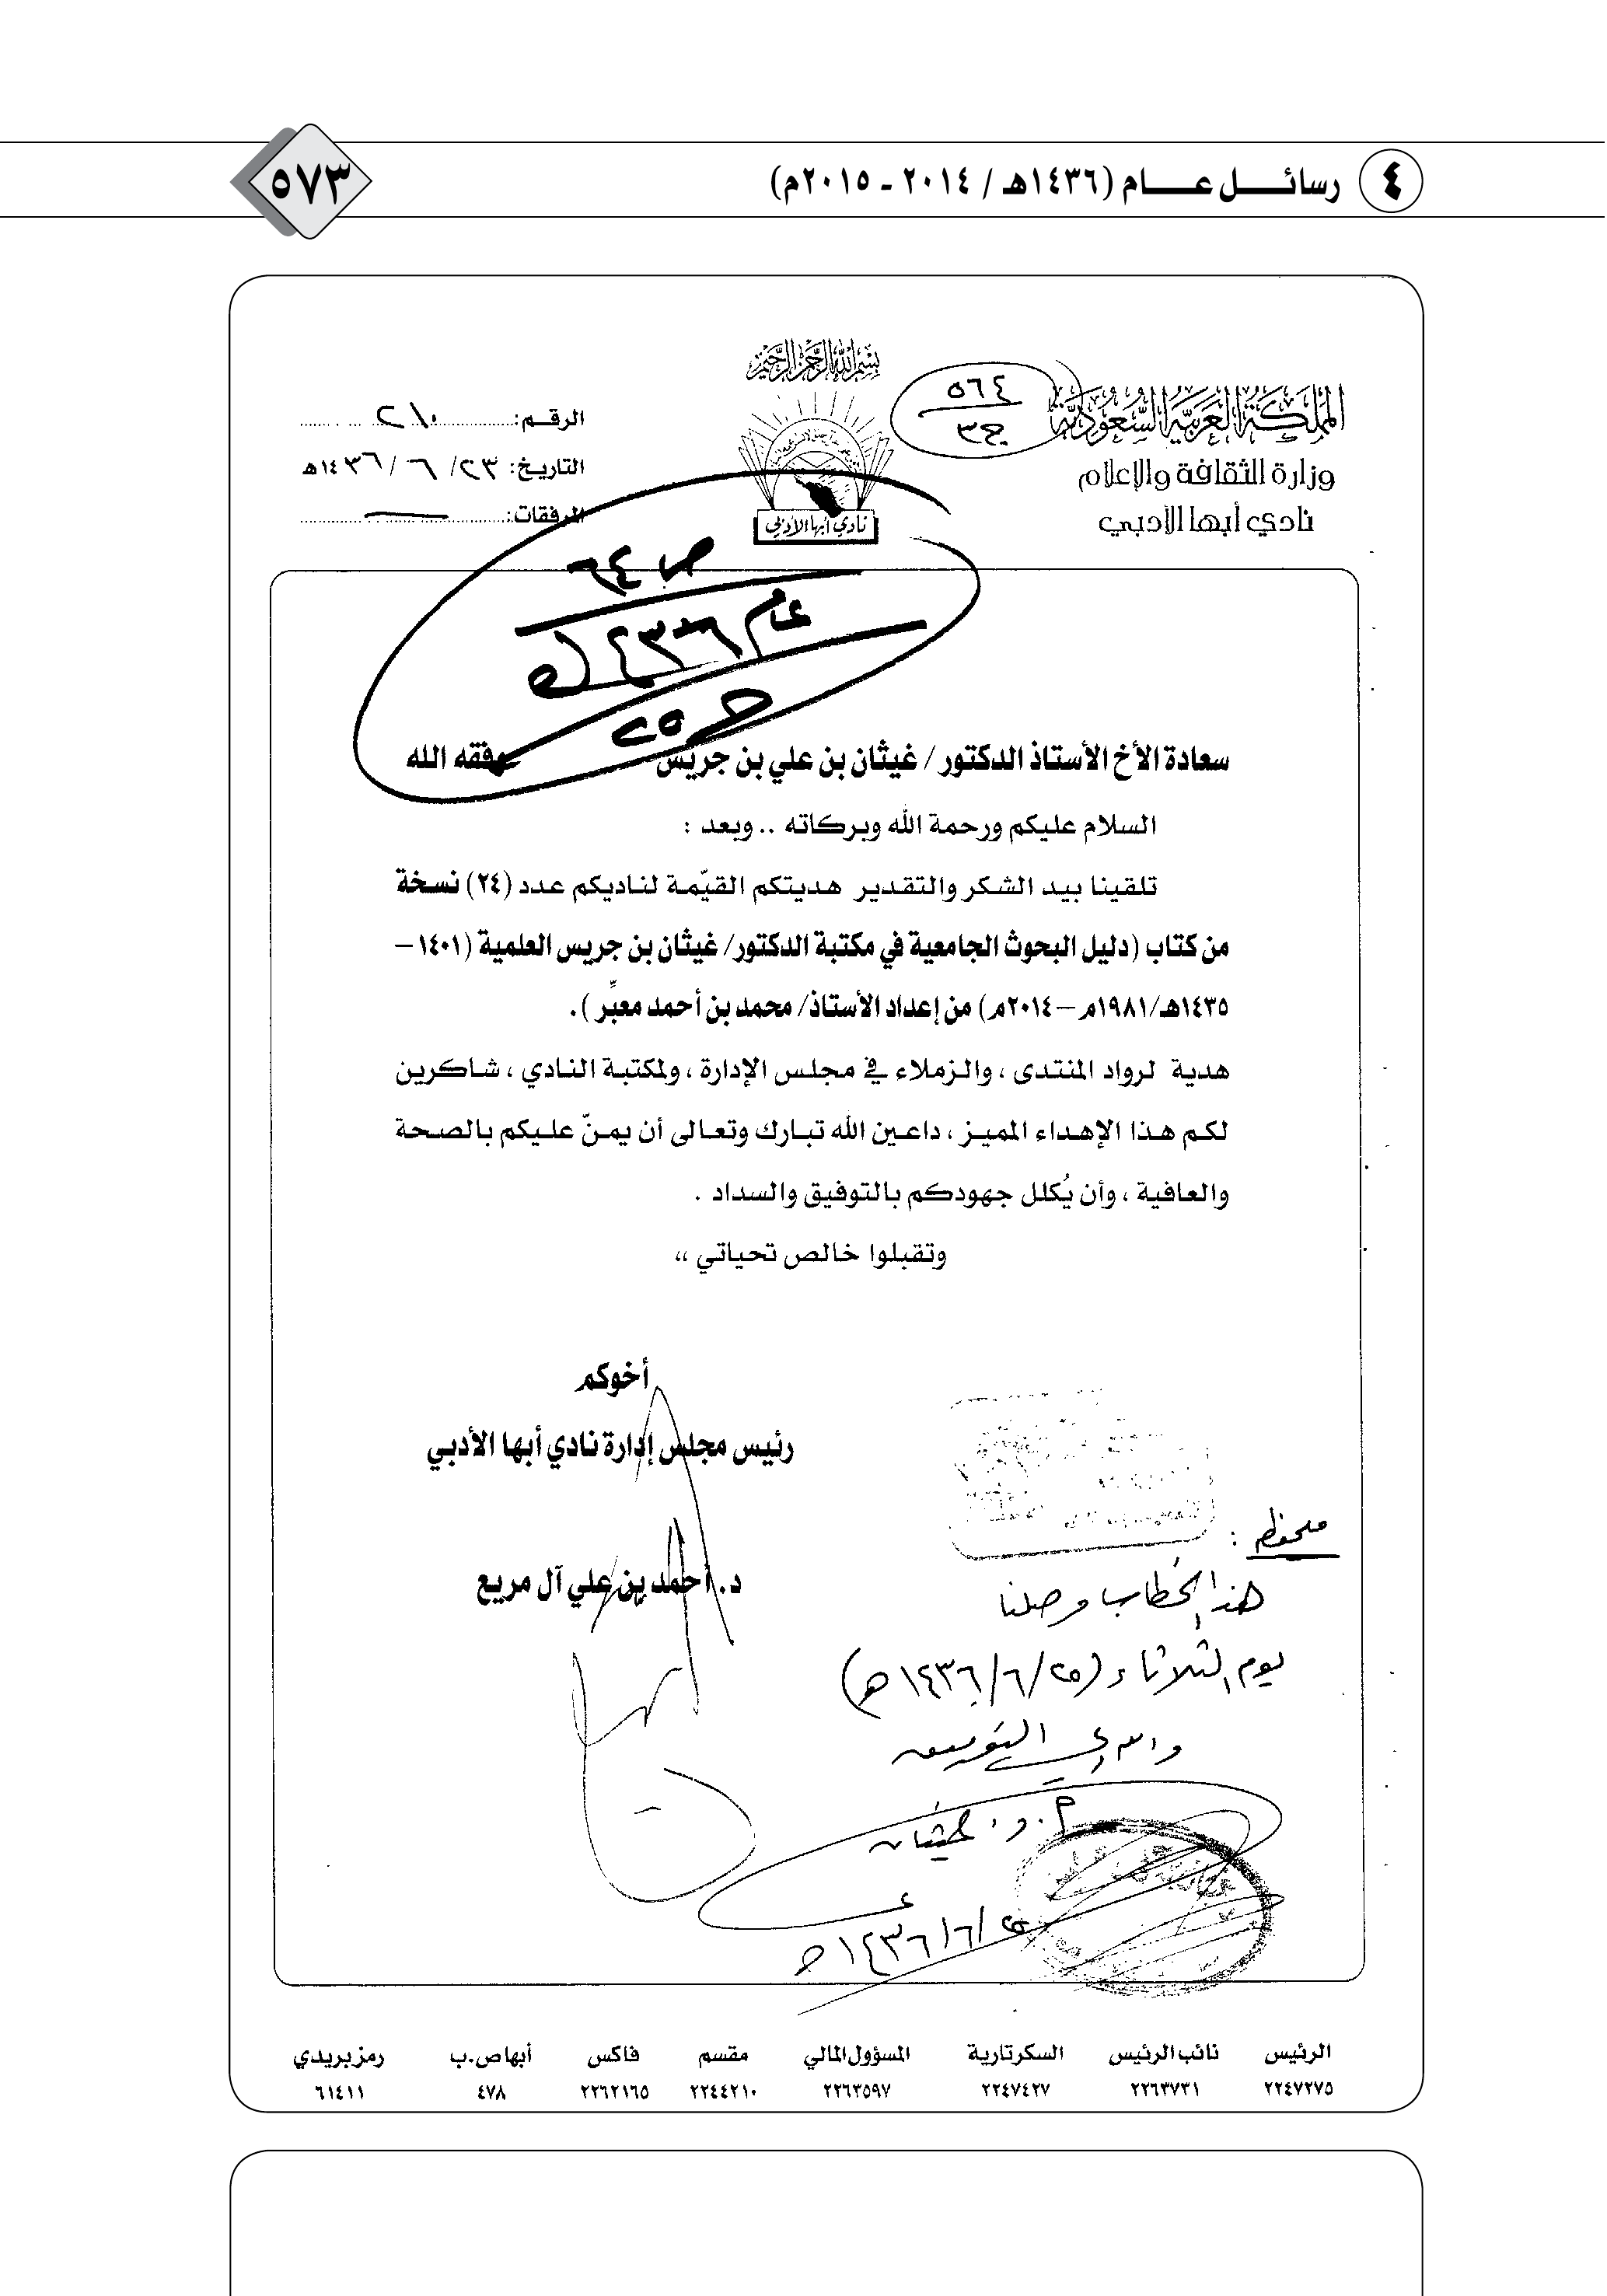 ٤ رسائل عام (١٤٣٦هـ / ٢٠١٤ - ٢٠١٥م)
٥٧٣
بسم الله الرحمن الرحيم
المملكة العربية السعودية
وزارة الثقافة والإعلام
نادي أبها الأدبي
٥٦٤
ج٣
نادي أبها الأدبي
الرقم: ٢١٠
التاريخ: ٢٣/ ٦ / ١٤٣٦هـ
المرفقات:
ص ٦٤
عام ١٤٣٦هـ
سعادة الأخ الأستاذ الدكتور / غيثان بن علي بن جريس وفقه الله
السلام عليكم ورحمة الله وبركاته .. وبعد :
تلقينا بيد الشكر والتقدير هديتكم القيّمة لناديكم عدد (٢٤) نسخة
من كتاب (دليل البحوث الجامعية في مكتبة الدكتور/ غيثان بن جريس العلمية (١٤٠١ –
١٤٣٥هـ/١٩٨١م – ٢٠١٤م) من إعداد الأستاذ/ محمد بن أحمد معبّر ) .
هدية لرواد المنتدى ، والزملاء في مجلس الإدارة ، ولمكتبة النادي ، شاكرين
لكم هذا الإهداء المميز ، داعين الله تبارك وتعالى أن يمنّ عليكم بالصحة
والعافية ، وأن يُكلل جهودكم بالتوفيق والسداد .
وتقبلوا خالص تحياتي ،،
أخوكم
رئيس مجلس إدارة نادي أبها الأدبي
د. أحمد بن علي آل مريع
ملحوظة :
هذا الخطاب وصلنا
يوم الثلاثاء (٢٥/٦/١٤٣٦هـ)
والله ولي التوفيق
٢٥/٦/١٤٣٦هـ
الرئيس نائب الرئيس السكرتارية المسؤول المالي مقسم فاكس أبها ص.ب رمز بريدي
٢٢٤٧٢٧٥ ٢٢٦٣٧٣١ ٢٢٤٧٤٢٧ ٢٢٦٣٥٩٧ ٢٢٤٤٢١٠ ٢٢٦٢١٦٥ ٤٧٨ ٦١٤١١